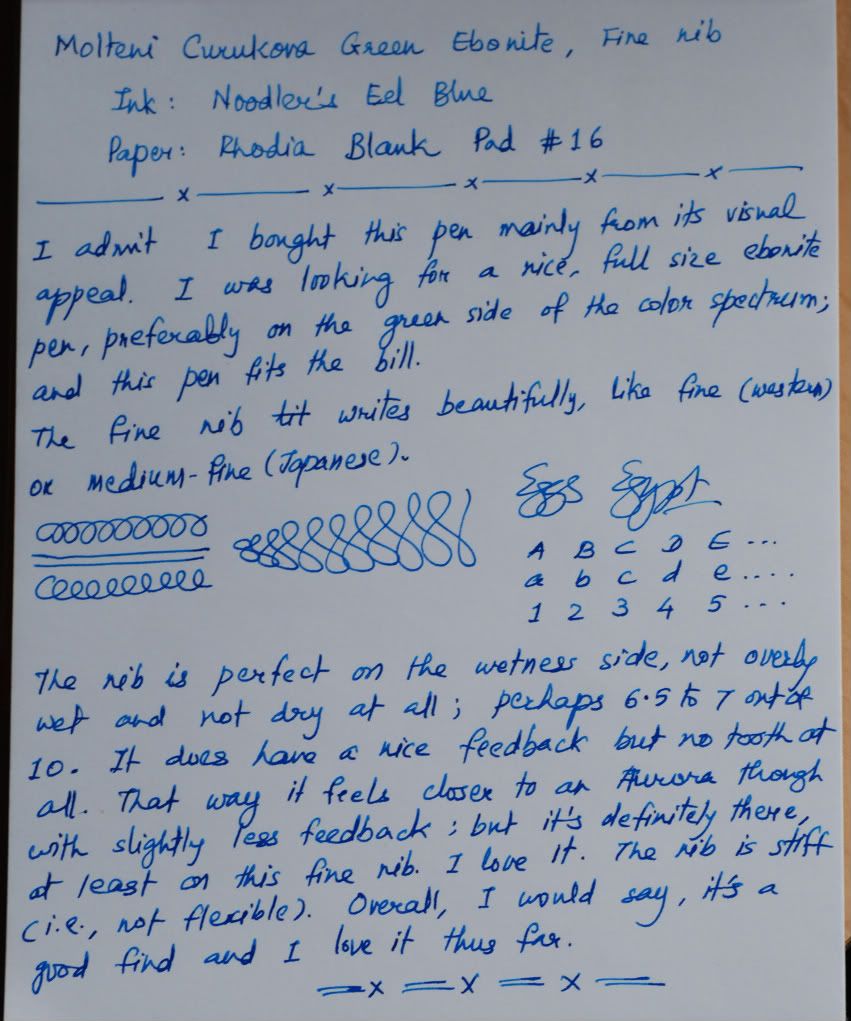 Molteni Curukova Green Ebonite, Fine nib
Ink: Noodler's Eel Blue
Paper: Rhodia Blank Pad #16
x x x x x
I admit I bought this pen mainly from its visual
appeal. I was looking for a nice, full size ebonite
pen, preferably on the green side of the color spectrum;
and this pen fits the bill.
The fine nib writes beautifully, like fine (western)
or medium-fine (Japanese).
Eggs Egypt
A B C D E ...
a b c d e ....
1 2 3 4 5 ...
The nib is perfect on the wetness side, not overly
wet and not dry at all; perhaps 6.5 to 7 out of
10. It does have a nice feedback but no tooth at
all. That way it feels closer to an Aurora though
with slightly less feedback; but it's definitely there,
at least on this fine nib. I love it. The nib is stiff
(i.e., not flexible). Overall, I would say, it's a
good find and I love it thus far.
= x = x = x =